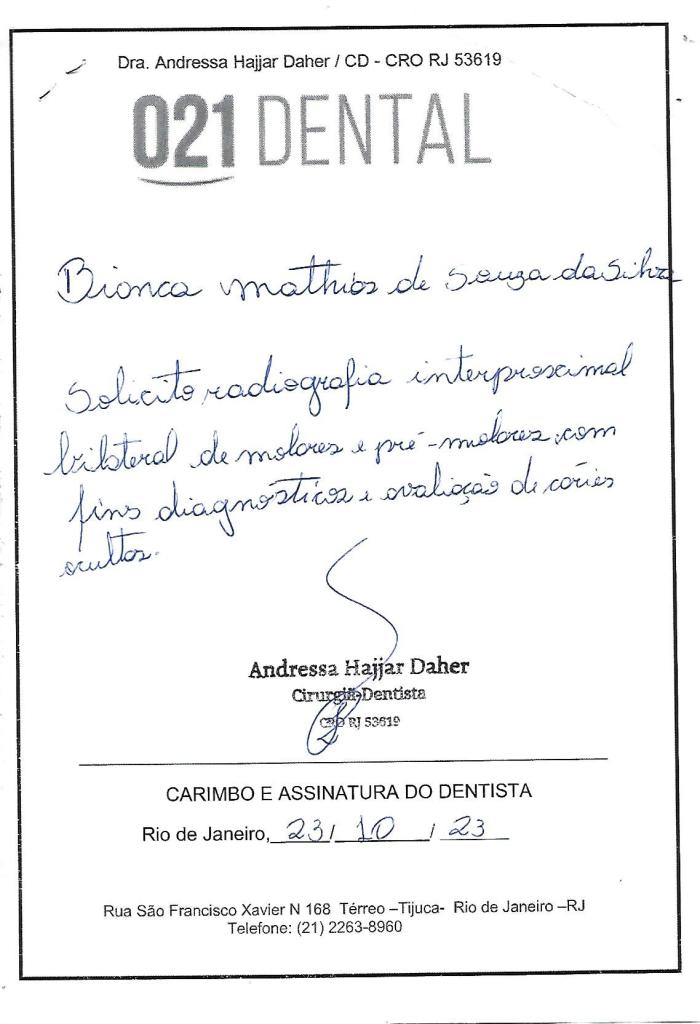 Dra. Andressa Hajjar Daher / CD - CRO RJ 53619
021 DENTAL
Bionca Mathias de Souza da Silva
Solicito radiografia interproximal
bilateral de molares e pré-molares, com
fins diagnósticos e avaliação de cáries
ocultas.
Andressa Hajjar Daher
Cirurgiã-Dentista
CRO RJ 53619
CARIMBO E ASSINATURA DO DENTISTA
Rio de Janeiro, 23 / 10 / 23
Rua São Francisco Xavier N 168 Térreo –Tijuca- Rio de Janeiro –RJ
Telefone: (21) 2263-8960